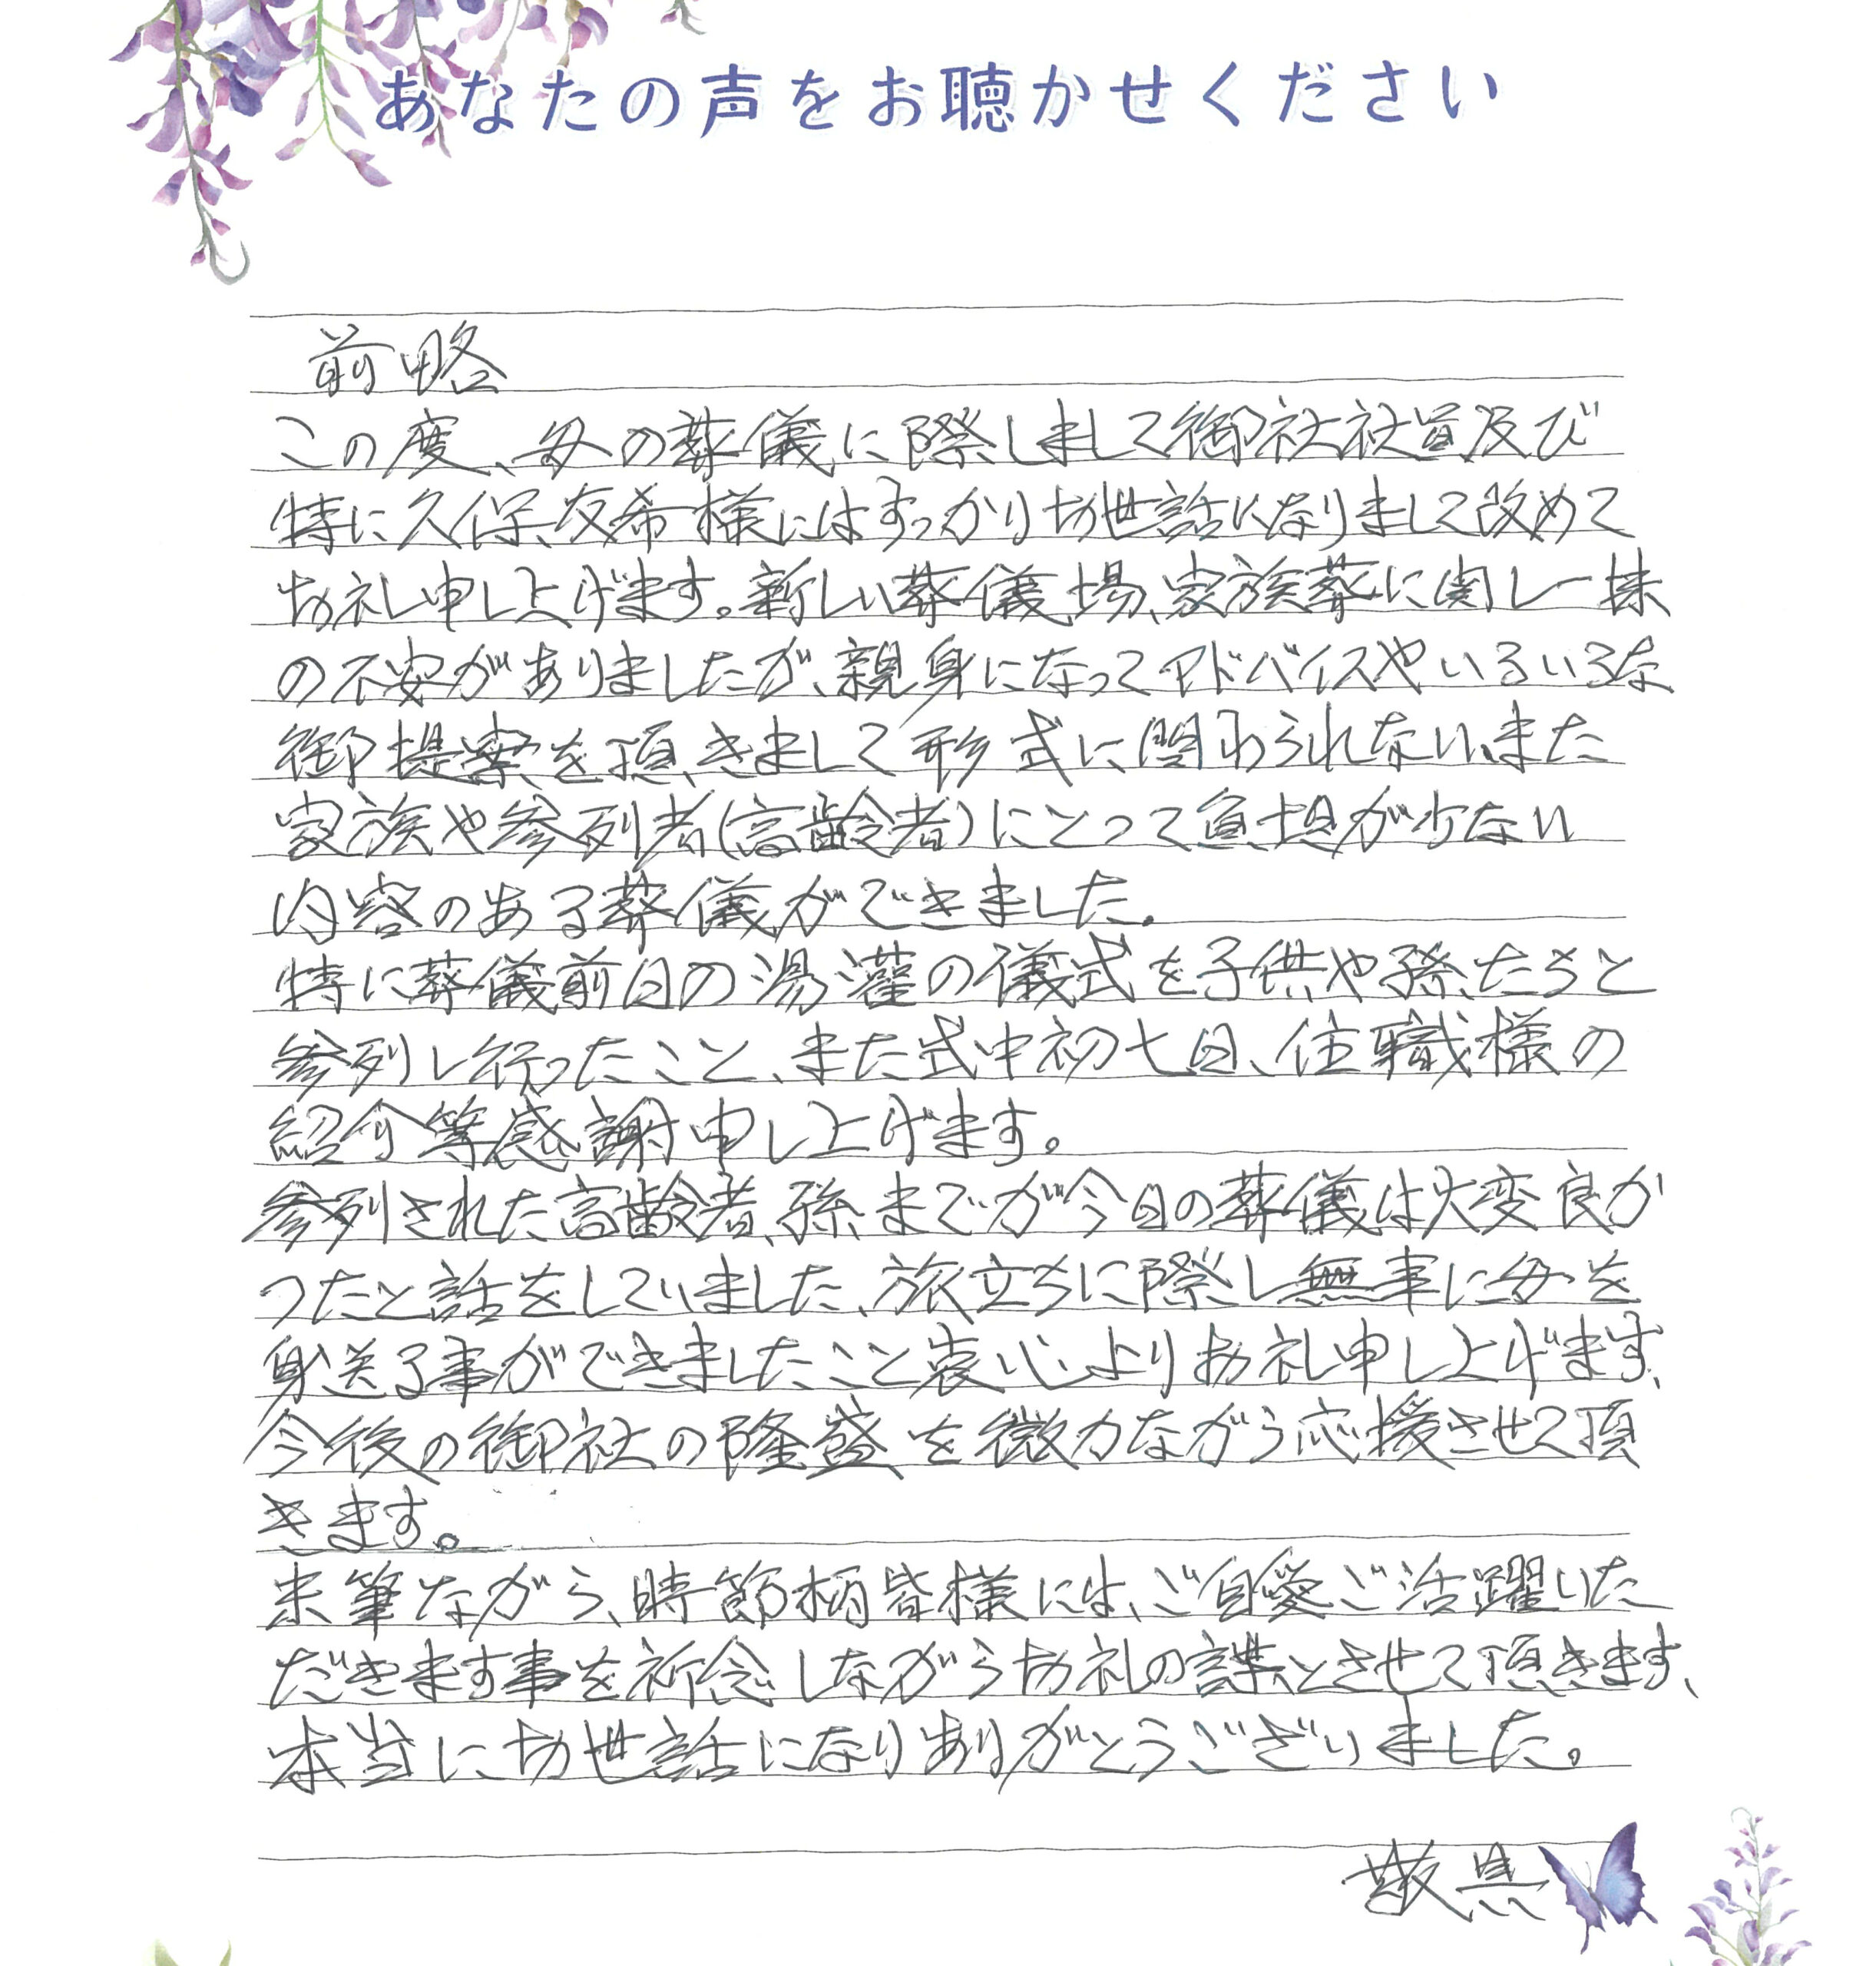 あなたの声をお聴かせください
前略
この度、母の葬儀に際しまして御社社員及び
特に久保友希様にはすっかりお世話になりまして改めて
お礼申し上げます。新しい葬儀場、家族葬に関し一抹
の不安がありましたが、親身になってアドバイスやいろいろな
御提案を頂きまして形式に関わられない、また
家族や参列者(高齢者)にとって負担が少ない
内容のある葬儀ができました。
特に葬儀前日の湯灌の儀式を子供や孫たちと
参列し行ったこと、また式中初七日、住職様の
紹介等感謝申し上げます。
参列された高齢者、孫までが今日の葬儀は大変良か
ったと話をしていました、旅立ちに際し無事に母を
身送る事ができましたこと衷心よりお礼申し上げます、
今後の御社の隆盛を微力ながら応援させて頂
きます。
末筆ながら、時節柄皆様には、ご自愛ご活躍いた
だきます事を祈念しながらお礼の詞とさせて頂きます、
本当にお世話になりありがとうございました。
敬具